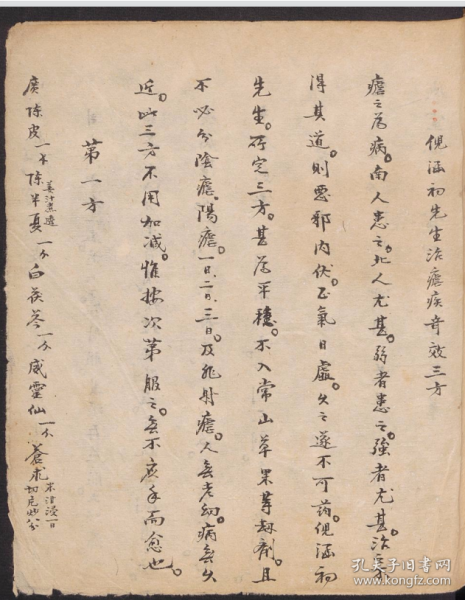 倪涵初先生治瘧疾奇效三方
瘧之為病。南人患之。北人尤甚。弱者患之。強者尤甚。治不
得其道。則惡邪內伏。正氣日虛。久之遂不可药。倪涵初
先生。研定三方。甚為平穩。不入常山草果等劫劑。且
不必分陰瘧陽瘧。一日。二日。三日。及非時瘧。人無老幼。病無久
近。此三方不用加減。惟按次第服之。無不應手而愈也。
第一方
廣陳皮一分陳半夏姜汁煮透一分白茯苓一分威靈仙一分蒼朮米泔浸一日切片炒分
孔夫子旧书网
www.kongfz.com